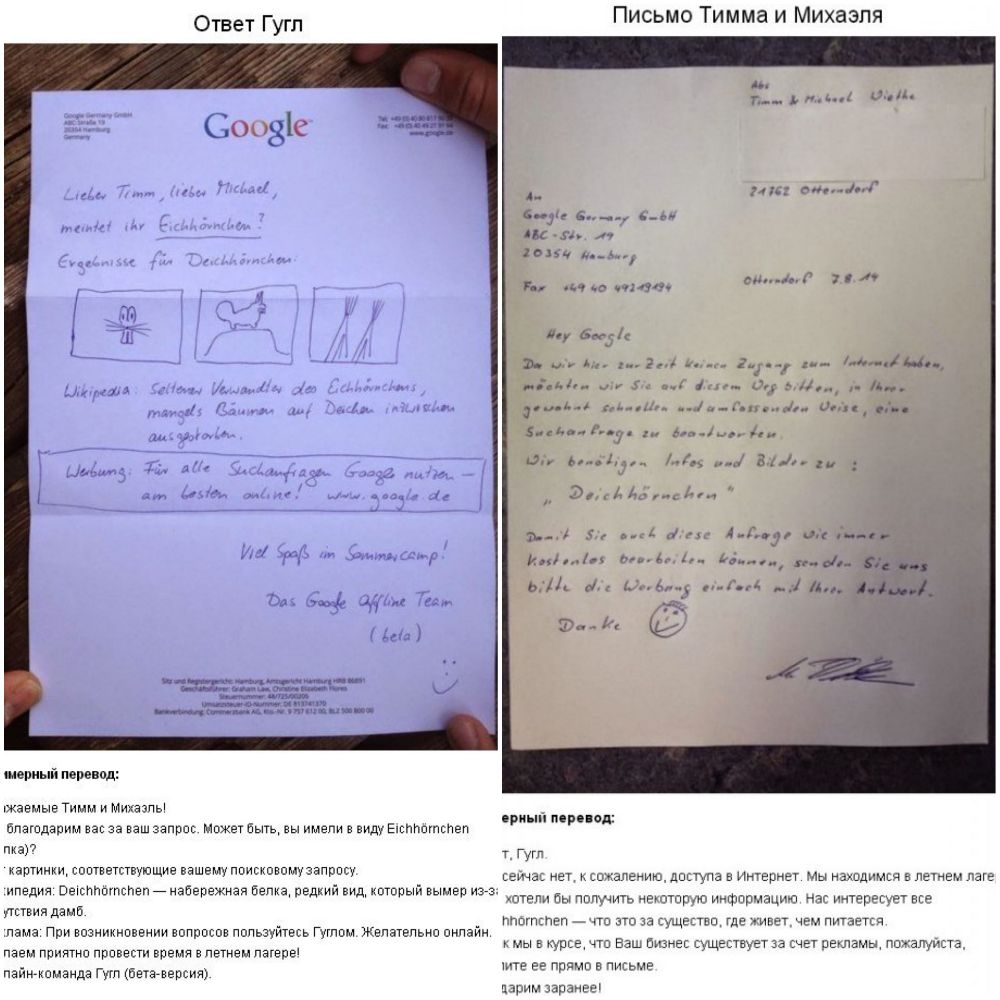 Ответ Гугл
Google Germany GmbH
ABC-Straße 19
20354 Hamburg
Germany
Google
www.google.de
Lieber Timm, lieber Michael,
meintet ihr Eichhörnchen?
Ergebnisse für Deichhörnchen:
Wikipedia: Seltener Verwandter des Eichhörnchens,
mangels Bäumen auf Deichen inzwischen
ausgestorben.
Werbung: Für alle Suchanfragen Google nutzen –
am besten online! www.google.de
Viel Spaß im Sommercamp!
Das Google Offline Team
(beta)
Sitz und Registergericht: Hamburg, Amtsgericht Hamburg HRB 86891
Geschäftsführer: Graham Law, Christine Elizabeth Flores
Steuernummer: 48/725/00206
Umsatzsteuer-ID-Nummer: DE 813741370
Bankverbindung: Commerzbank AG, Kto.-Nr. 9 757 612 00, BLZ 500 800 00
имерный перевод:
жаемые Тимм и Михаэль!
благодарим вас за ваш запрос. Может быть, вы имели в виду Eichhörnchen
лка)?
картинки, соответствующие вашему поисковому запросу.
кипедия: Deichhörnchen — набережная белка, редкий вид, который вымер из-за
утствия дамб.
лама: При возникновении вопросов пользуйтесь Гуглом. Желательно онлайн.
лаем приятно провести время в летнем лагере!
лайн-команда Гугл (бета-версия).
Письмо Тимма и Михаэля
Abs
Timm & Michael Wiethe
21762 Otterndorf
An
Google Germany GmbH
ABC-Str. 19
20354 Hamburg
Otterndorf 7.8.14
Fax +49 40 49219194
Hey Google
Da wir hier zur Zeit keinen Zugang zum Internet haben,
möchten wir Sie auf diesem Weg bitten, in Ihrer
gewohnt schnellen und umfassenden Weise, eine
Suchanfrage zu beantworten.
Wir benötigen Infos und Bilder zu :
„Deichhörnchen"
Damit Sie auch diese Anfrage wie immer
kostenlos bearbeiten können, senden Sie uns
bitte die Werbung einfach mit Ihrer Antwort.
Danke
ерный перевод:
т, Гугл.
сейчас нет, к сожалению, доступа в Интернет. Мы находимся в летнем лаге
хотели бы получить некоторую информацию. Нас интересует все
hhörnchen — что это за существо, где живет, чем питается.
к мы в курсе, что Ваш бизнес существует за счет рекламы, пожалуйста,
лите ее прямо в письме.
дарим заранее!